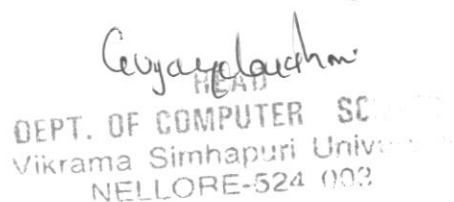 HEAD
DEPT. OF COMPUTER SC
Vikrama Simhapuri Univ
NELLORE-524 003